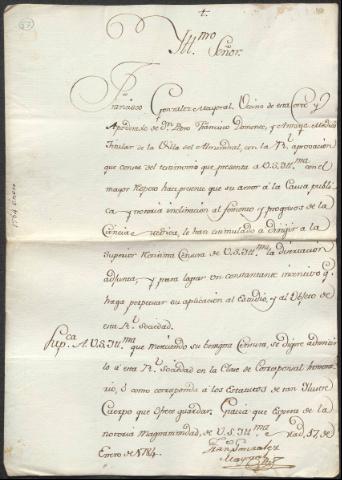 Ill.mo
Señor.
Francisco Gonzalez Mayoral, Vecino de esta Corte y
Apoderado de Dn. Pedro Francisco Domenec, y Amaya Medico
Titular de la Villa del Almendral, con la Rl. aprovacion
que consta del testimonio que presenta a V.S.Ill.ma con el
mayor Respeto hace presente que su amor à la Causa publi
ca y notoria inclinacion al fomento y progresos de la
Ciencia Medica, le han estimulado a dirigir a la
Superior Rectisima Censura de V.S.Ill.ma la disertacion
adjunta, y para lograr un constante incentivo q.
haga perpetuar su aplicacion al Estudio, y al Obsequio de
esta Rl. Sociedad.
Sup.ca A.V.S.Ill.ma que mereciendo su benigna Censura, se digne admitir
lo à esta Rl. Sociedad en la Clase de Corresponsal honora
rio, ó como corresponda à los Estatutos de tan Ilustre
Cuerpo que ofrece guardar; Gracia que espera de la
notoria Magnanimidad, de V.S.Ill.ma Mad. 17, de
Enero de 1784.
Fran.co Gonzalez
Mayoral